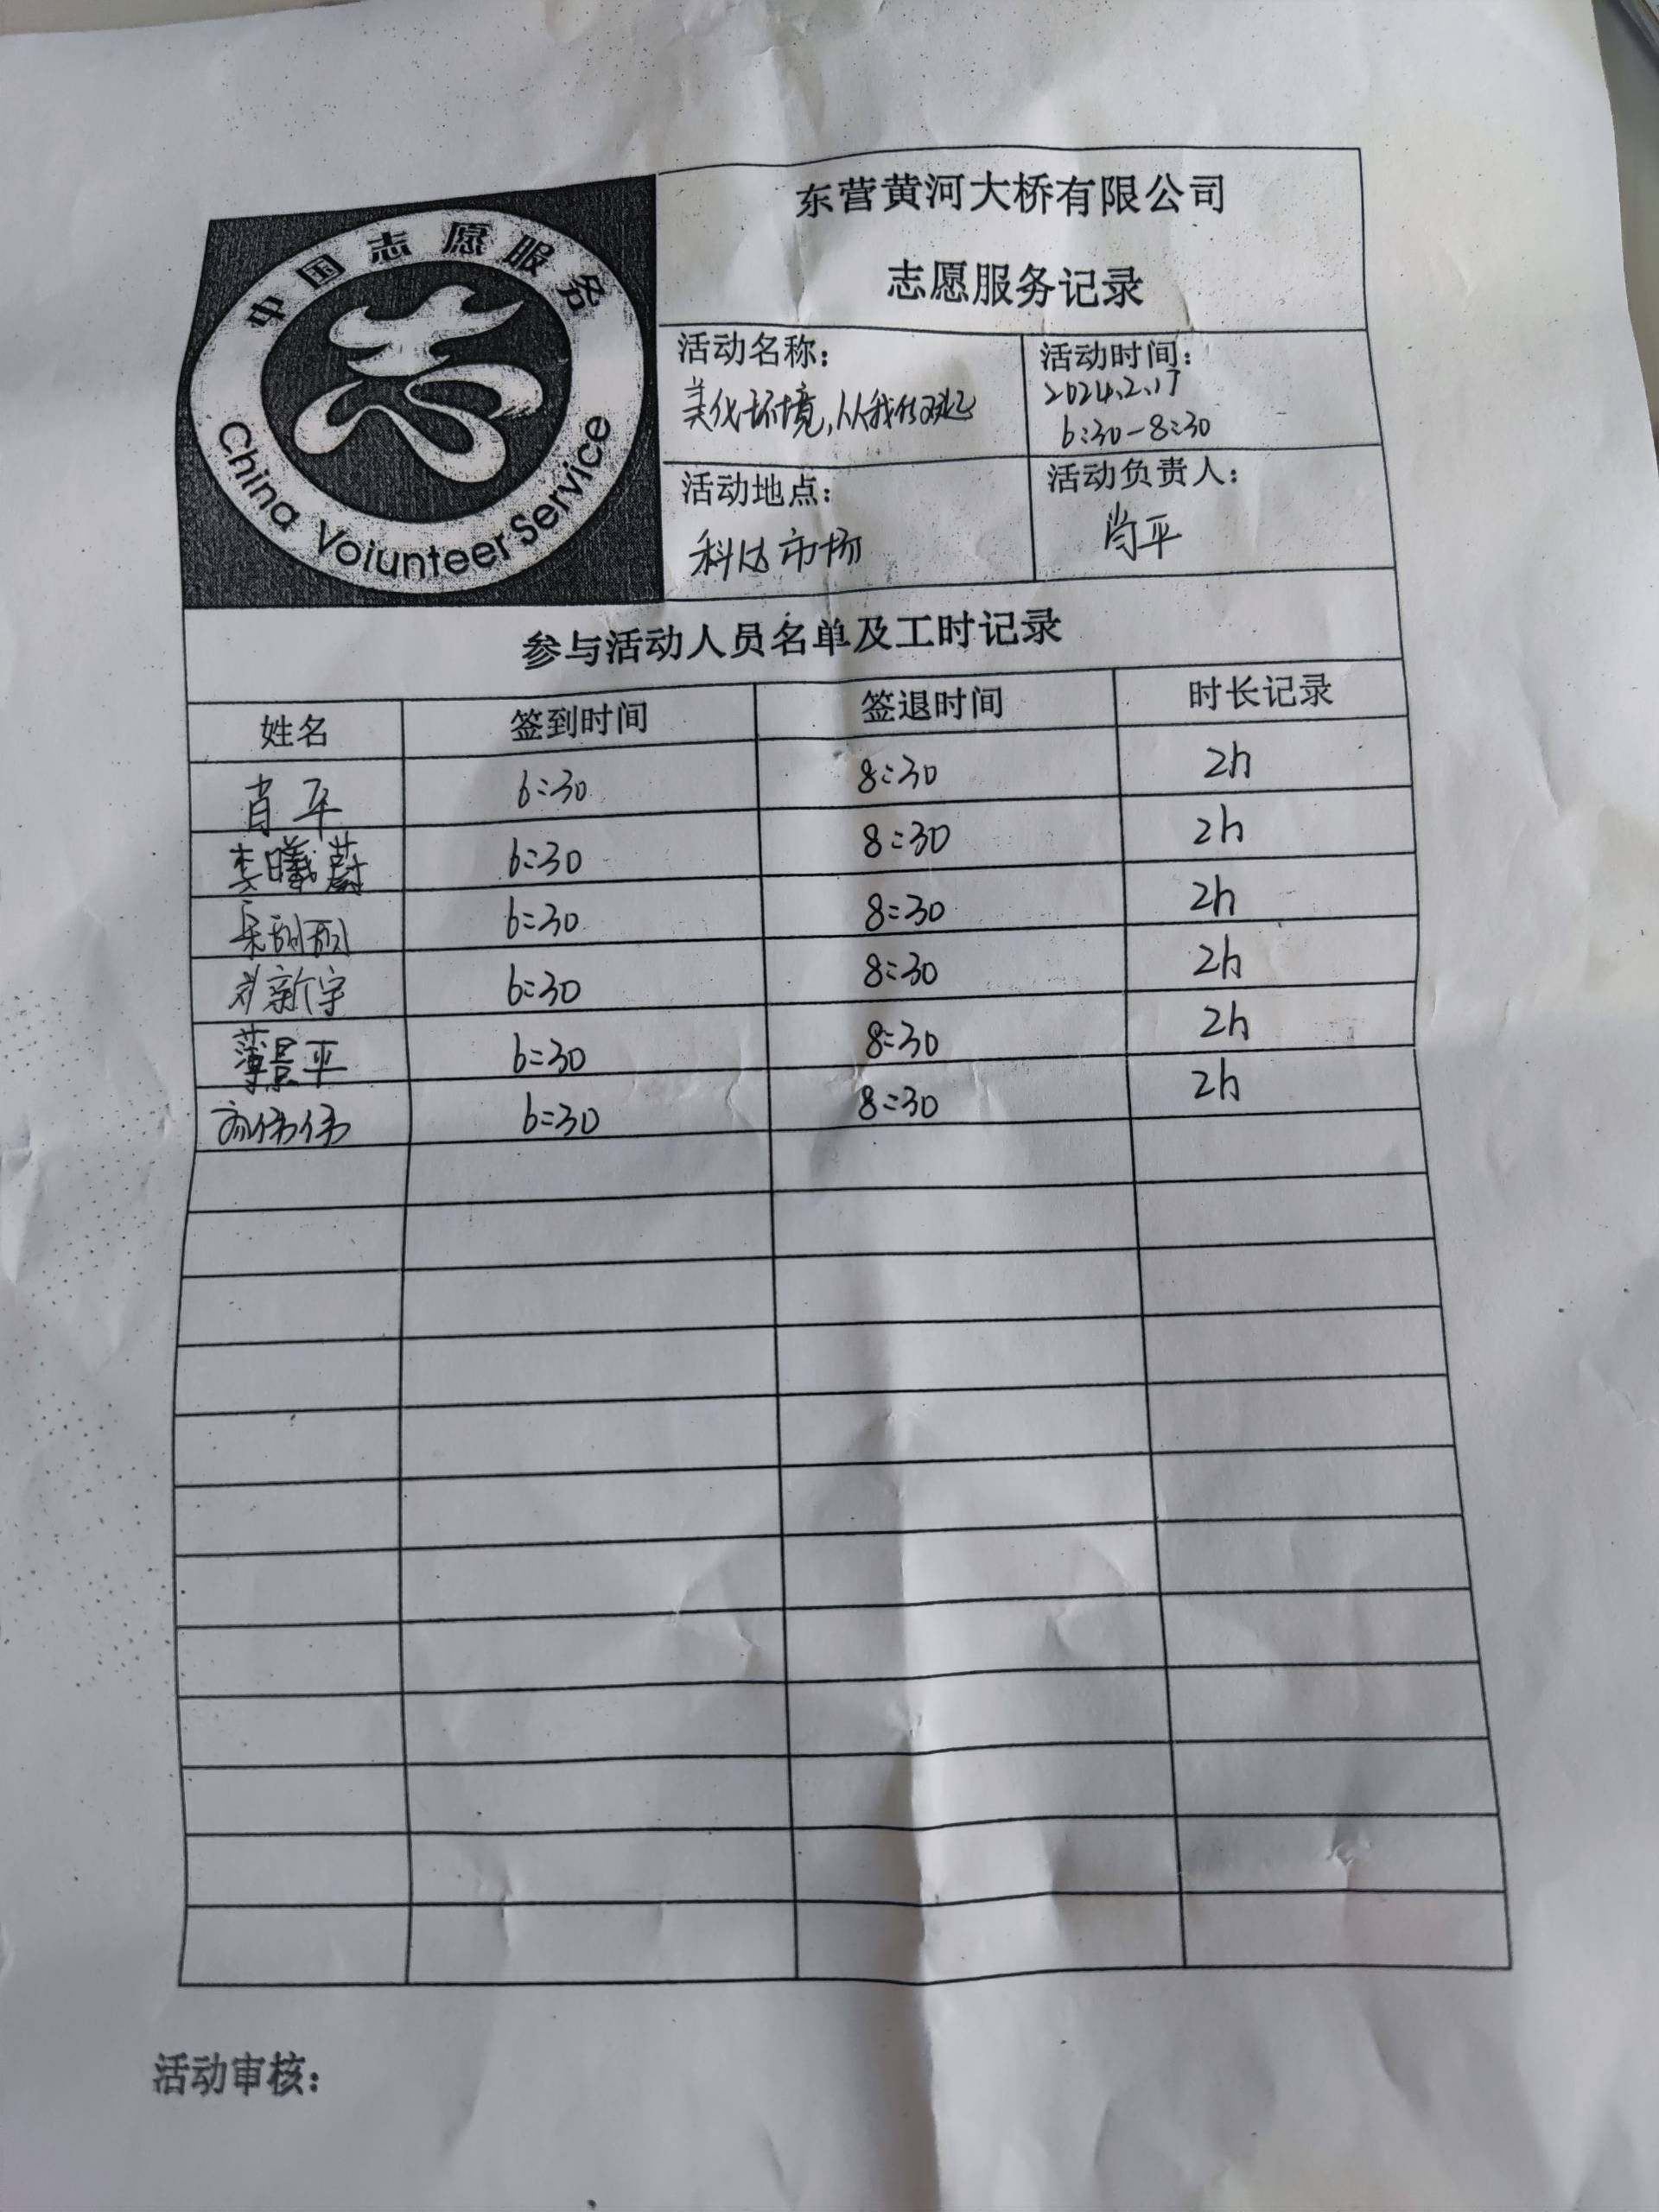 东营黄河大桥有限公司
志愿服务记录
中国志愿服务
China Voiunteer Service
活动名称:
美化环境,从我们做起
活动时间:
2024.2.17
6:30-8:30
活动地点:
科达市场
活动负责人:
肖平
参与活动人员名单及工时记录
姓名 签到时间 签退时间 时长记录
肖平 6:30 8:30 2h
李曦蔚 6:30 8:30 2h
6:30 8:30 2h
刘新宇 6:30 8:30 2h
薄景平 6:30 8:30 2h
伟伟 6:30 8:30 2h
活动审核: